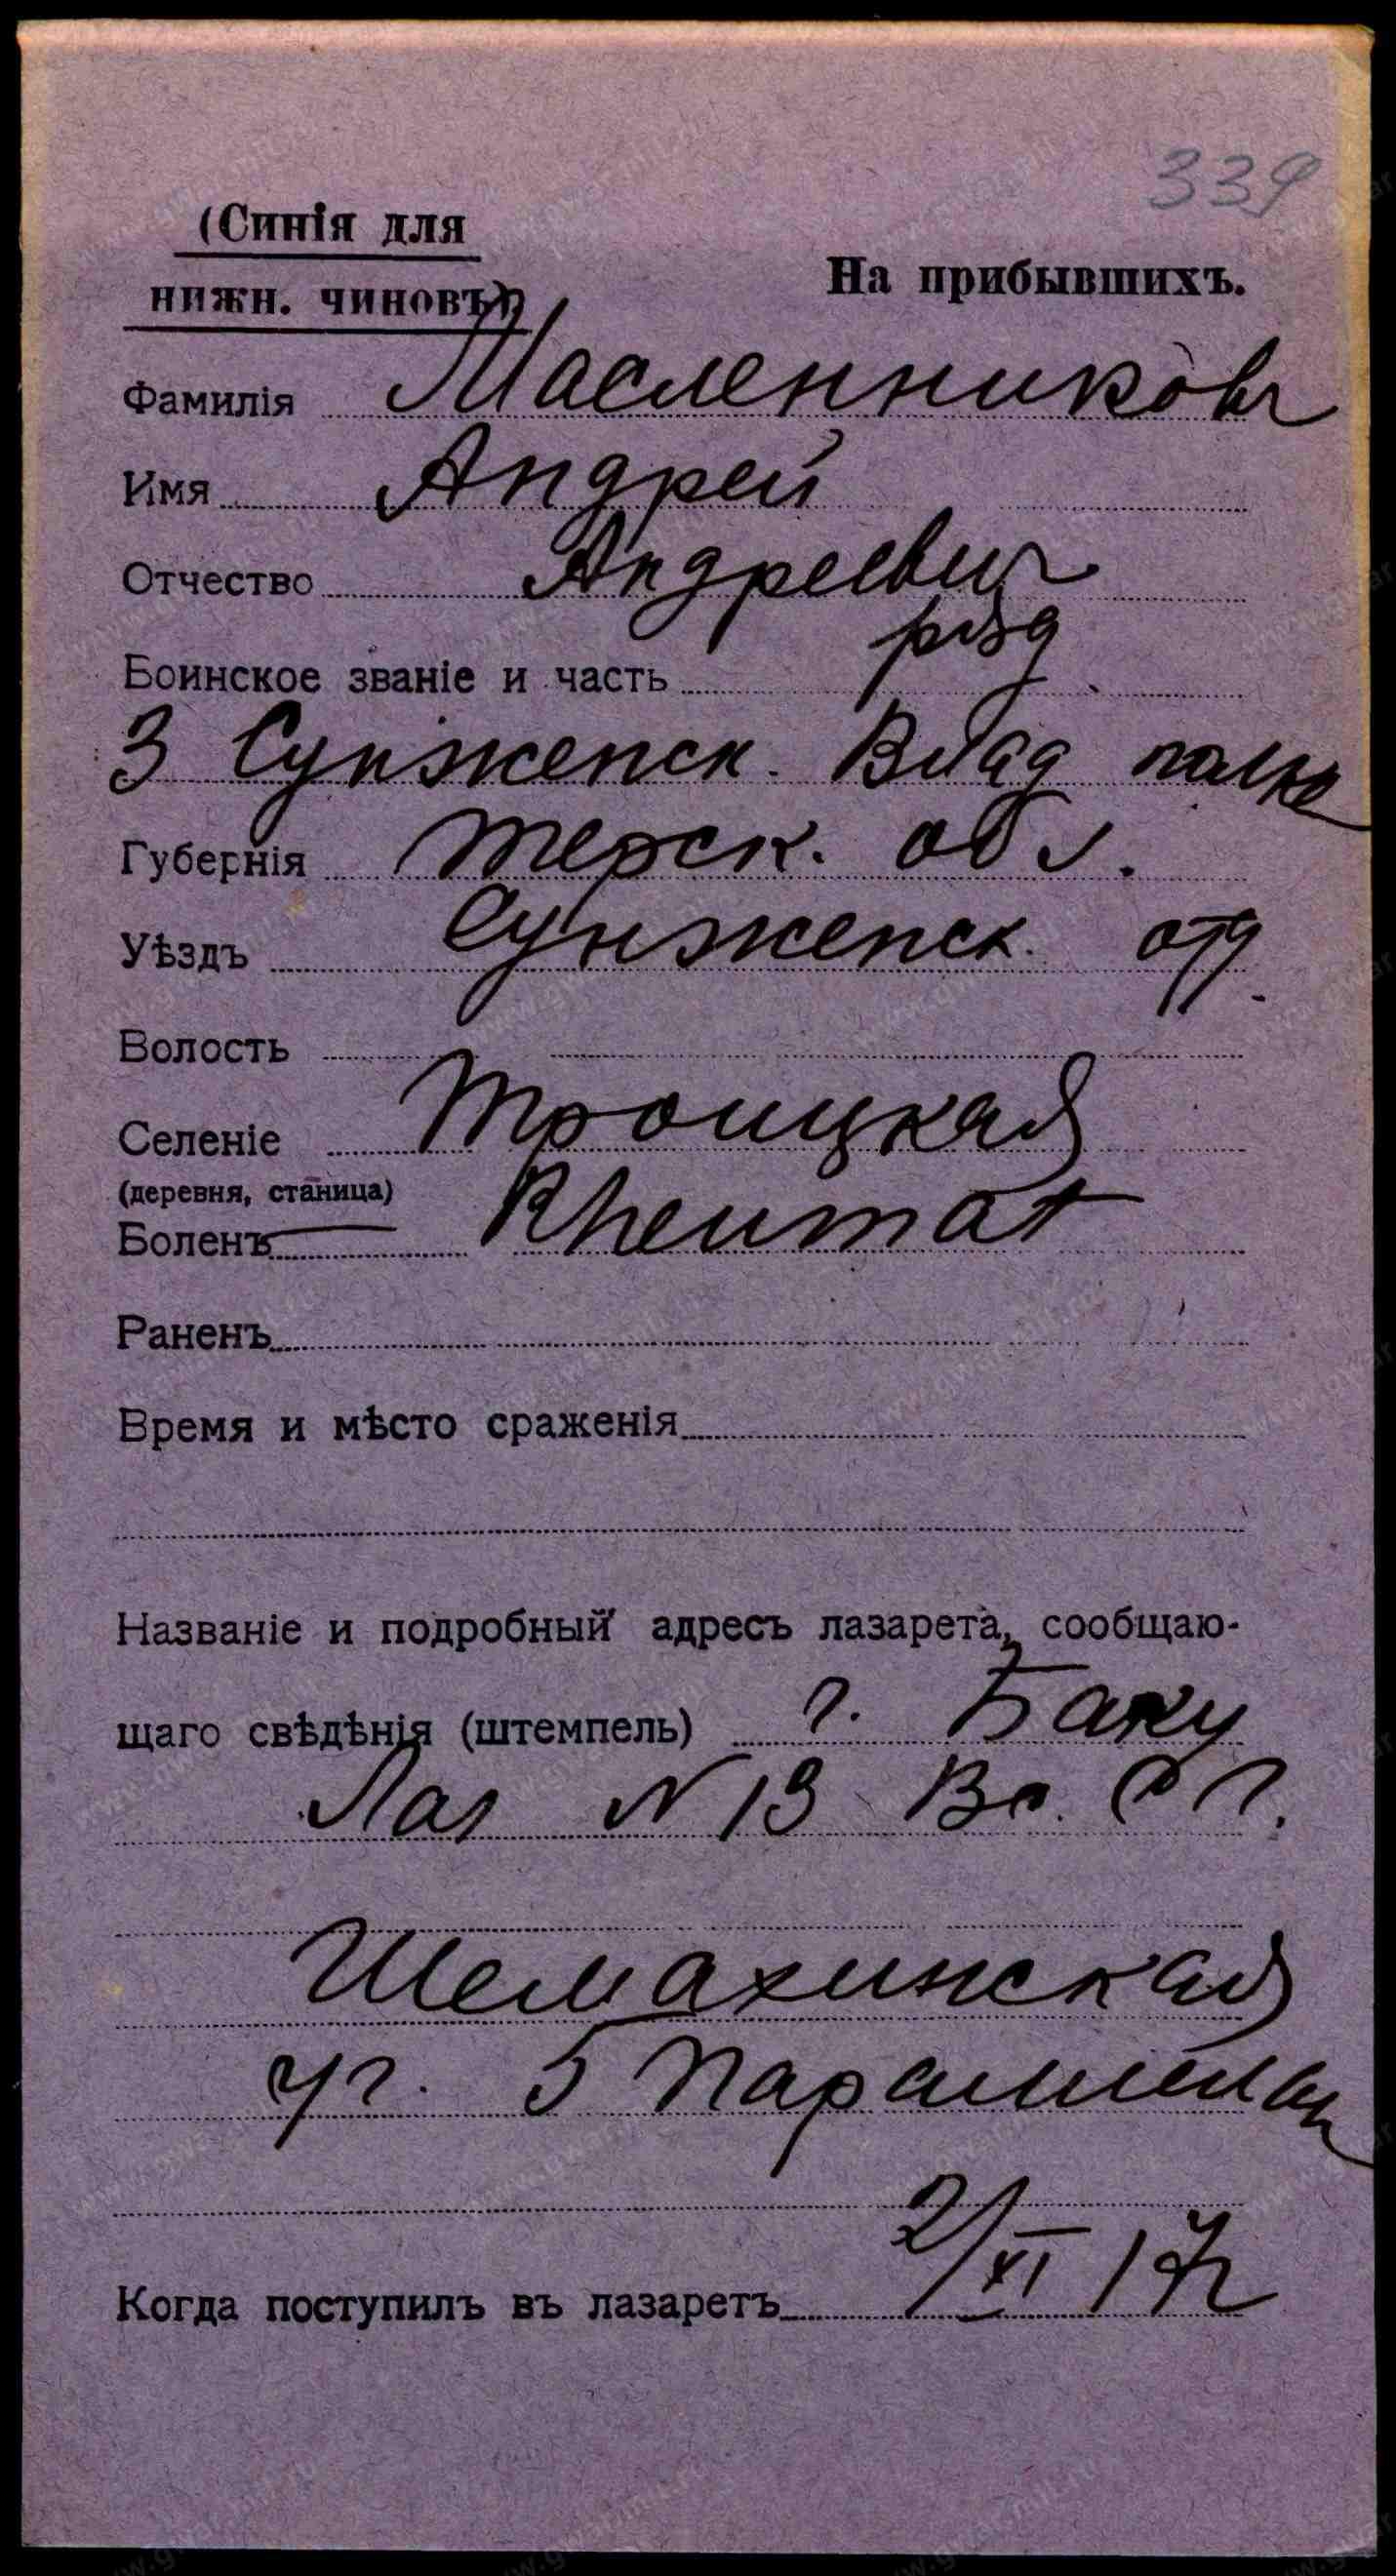 339
(Синія для
нижн. чиновъ)
На прибывшихъ.
Фамилія Масленниковъ
Имя Андрей
Отчество Андреевич
Воинское званіе и часть
3 Сунженск. Влад полка
Губернія Терск. обл.
Уѣздъ Сунженск. отд.
Волость
Селеніе Троицкая
(деревня, станица)
Боленъ Rheumat
Раненъ
Время и мѣсто сраженія
Названіе и подробный адресъ лазарета, сообщаю-
щаго свѣдѣнія (штемпель) г. Баку
Лаз N 13 Вс. С Г.
Шемахинская
уг. 5 Парашелан
Когда поступилъ въ лазаретъ 2/XI 17